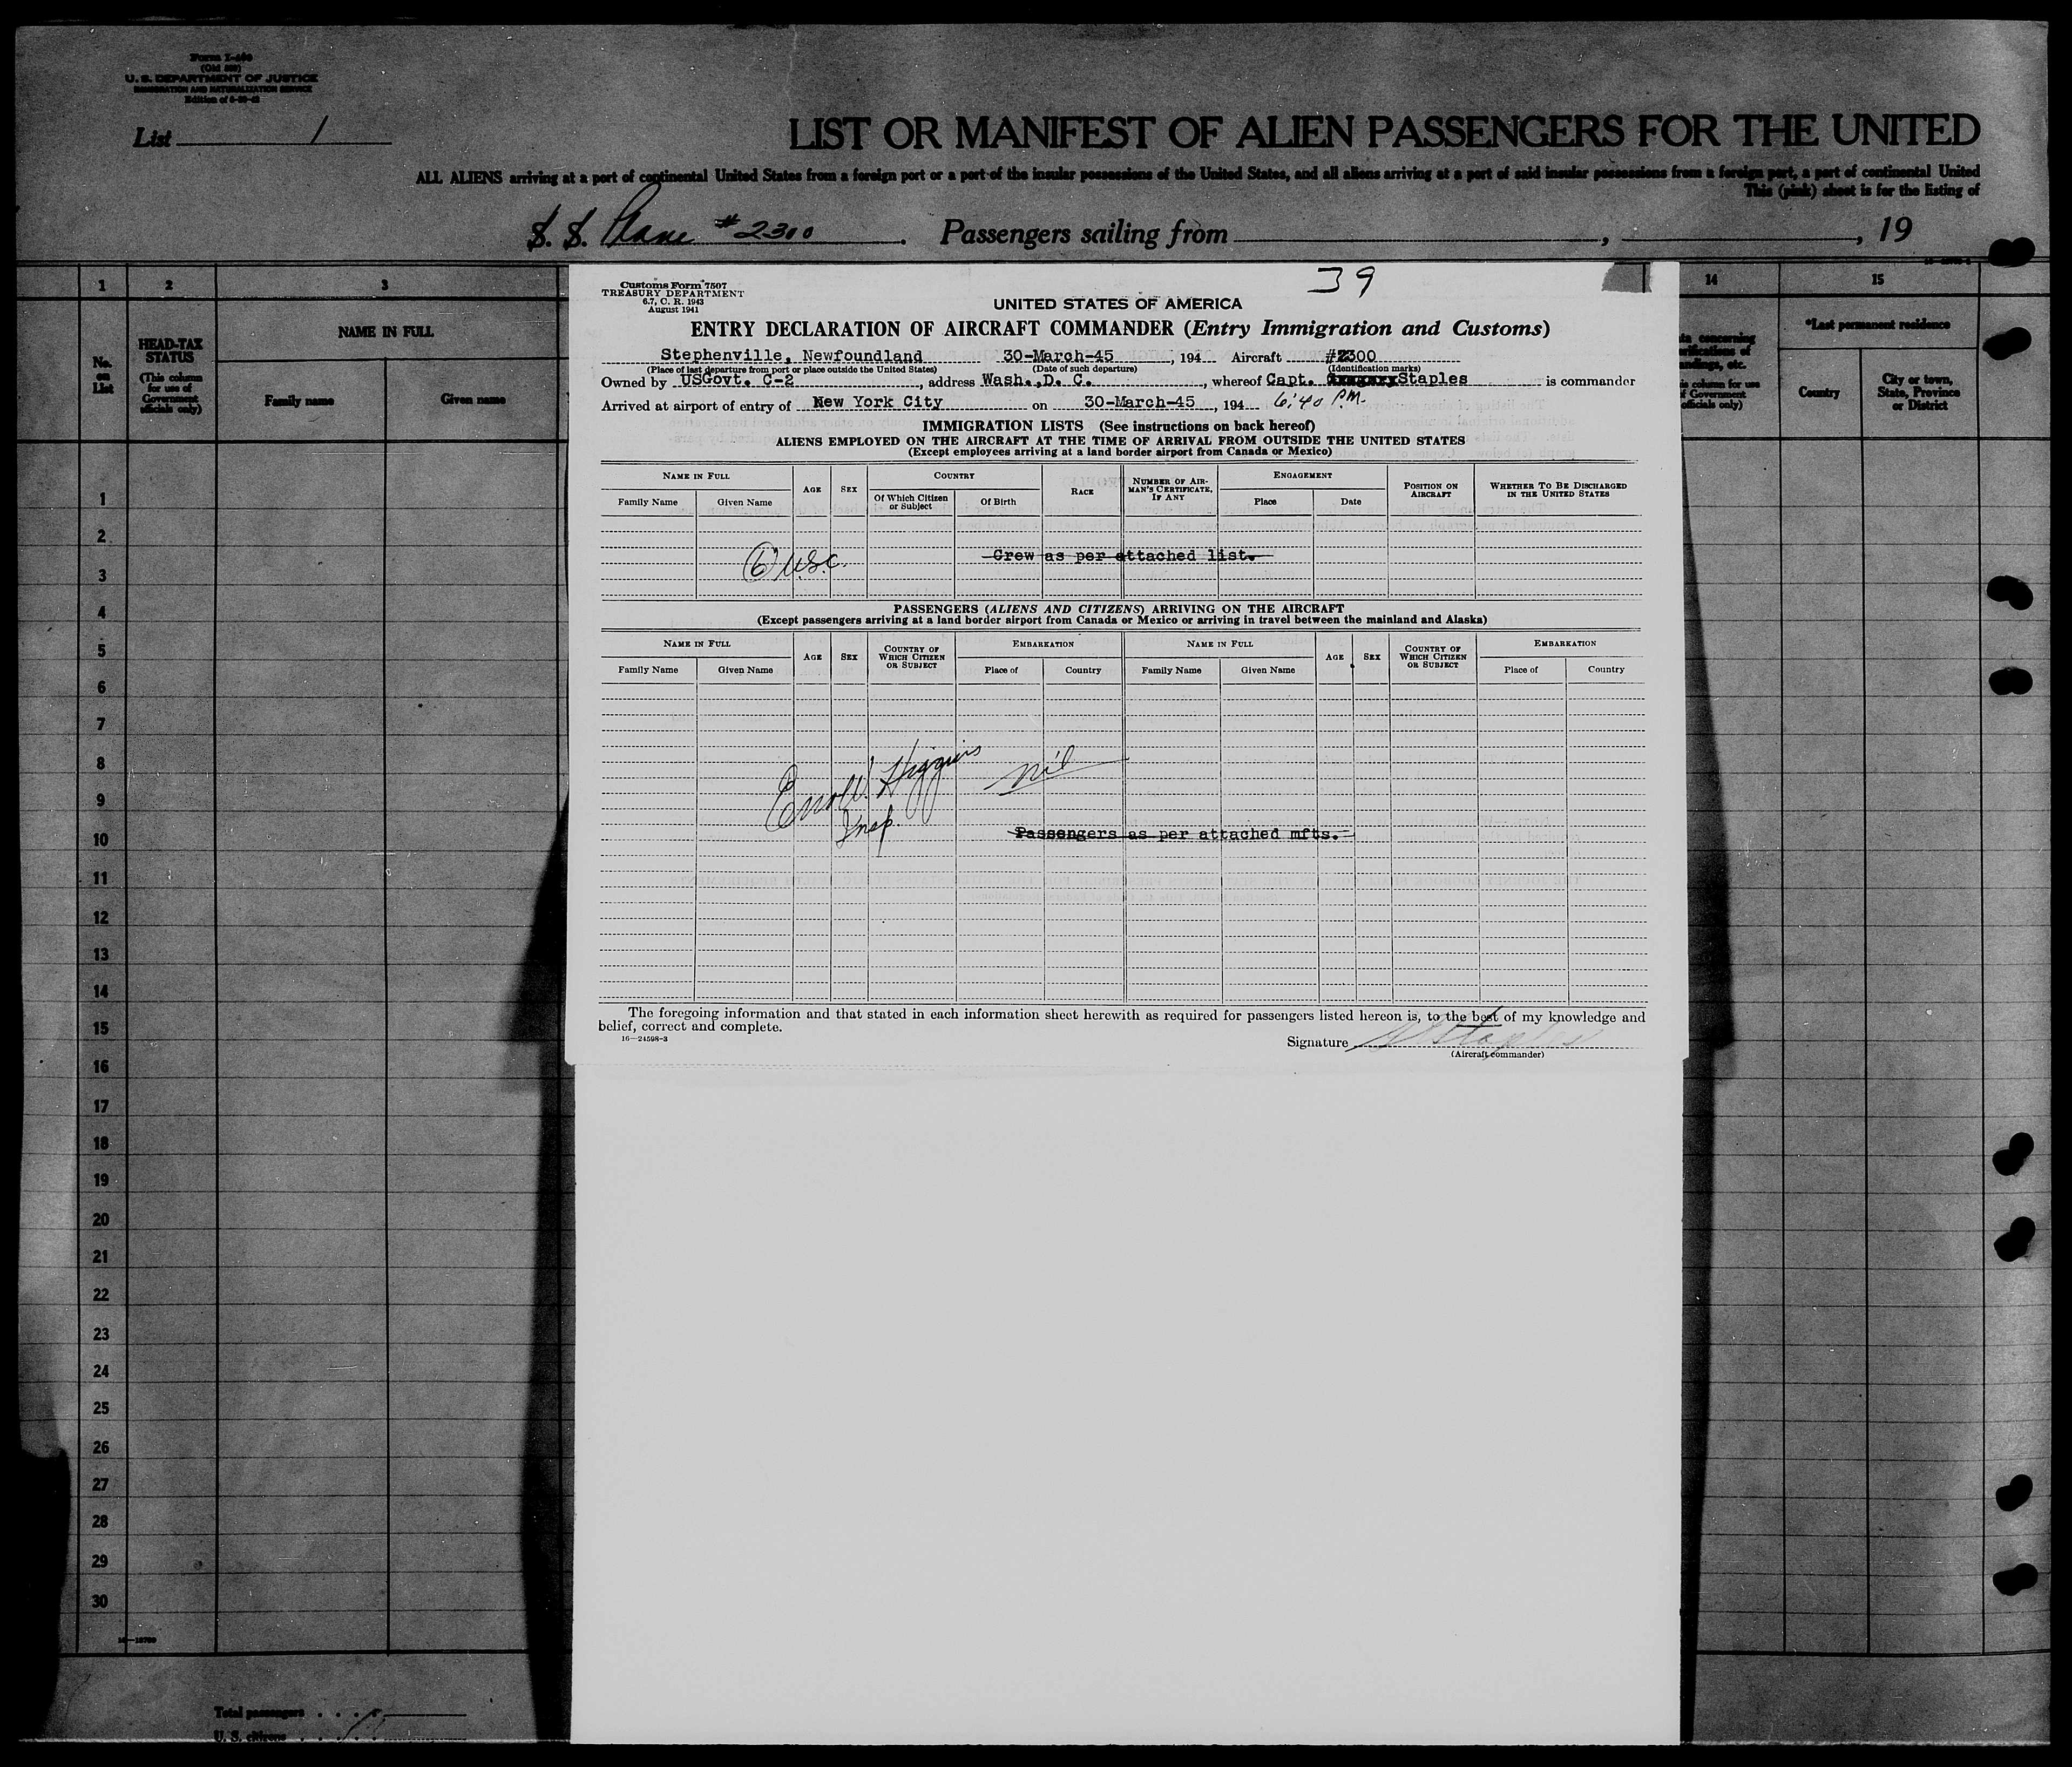 Form I-466
(Old 500)
U. S. DEPARTMENT OF JUSTICE
IMMIGRATION AND NATURALIZATION SERVICE
List 1
LIST OR MANIFEST OF ALIEN PASSENGERS FOR THE UNITED
ALL ALIENS arriving at a port of continental United States from a foreign port or a port of the insular possessions of the United States, and all aliens arriving at a port of said insular possessions from a foreign port, a part of continental United
This (pink) sheet is for the listing of
S. S. Plane #2300. Passengers sailing from , , 19
1 2 3 14 15
No. on List
HEAD-TAX STATUS
(This column for use of Government officials only)
NAME IN FULL
Family name Given name
*Last permanent residence
Country City or town, State, Province or District
39
Customs Form 7507
TREASURY DEPARTMENT
6.7, C. R. 1943
August 1941
UNITED STATES OF AMERICA
ENTRY DECLARATION OF AIRCRAFT COMMANDER (Entry Immigration and Customs)
Stephenville, Newfoundland 30-March-45, 194 Aircraft #2300
(Place of last departure from port or place outside the United States) (Date of such departure) (Identification marks)
Owned by USGovt. C-2, address Wash.,D. C., whereof Capt. Staples is commander
Arrived at airport of entry of New York City on 30-March-45, 194 6:40 P.M.
IMMIGRATION LISTS (See instructions on back hereof)
ALIENS EMPLOYED ON THE AIRCRAFT AT THE TIME OF ARRIVAL FROM OUTSIDE THE UNITED STATES
(Except employees arriving at a land border airport from Canada or Mexico)
NAME IN FULL AGE SEX COUNTRY RACE NUMBER OF AIRMAN'S CERTIFICATE, IF ANY ENGAGEMENT POSITION ON AIRCRAFT WHETHER TO BE DISCHARGED IN THE UNITED STATES
Family Name Given Name Of Which Citizen or Subject Of Birth Place Date
Crew as per attached list.
6 USC.
PASSENGERS (ALIENS AND CITIZENS) ARRIVING ON THE AIRCRAFT
(Except passengers arriving at a land border airport from Canada or Mexico or arriving in travel between the mainland and Alaska)
NAME IN FULL AGE SEX COUNTRY OF WHICH CITIZEN OR SUBJECT EMBARKATION NAME IN FULL AGE SEX COUNTRY OF WHICH CITIZEN OR SUBJECT EMBARKATION
Family Name Given Name Place of Country Family Name Given Name Place of Country
Errol W. Higgins nil
Insp.
Passengers as per attached mfts.
The foregoing information and that stated in each information sheet herewith as required for passengers listed hereon is, to the best of my knowledge and
belief, correct and complete.
16—24598-3
Signature Staples
(Aircraft commander)
1
2
3
4
5
6
7
8
9
10
11
12
13
14
15
16
17
18
19
20
21
22
23
24
25
26
27
28
29
30
Total passengers
U. S. citizens